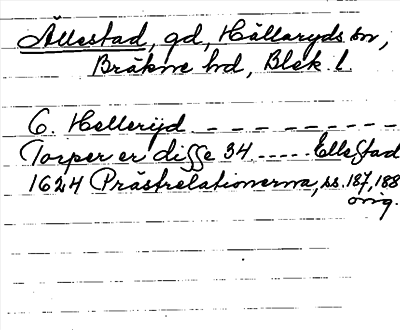 Ällestad, gd, Hällaryds sn,
Bräkne hd, Blek. l.
6. Hellerijd – – – – – – – – –
Torper er disse 34 ..... Ellestad
1624 Prästrelationerna, ss. 187, 188
orig.